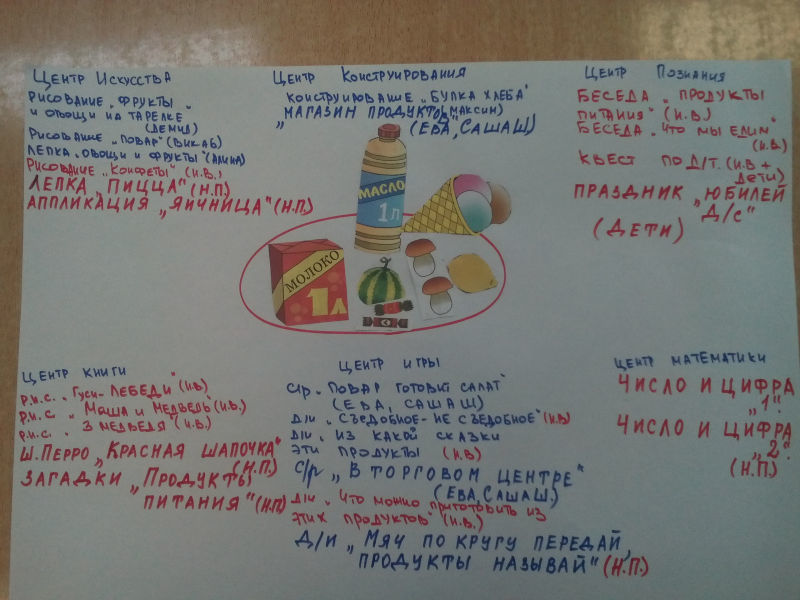 Центр Искусства
Рисование „Фрукты"
и овощи на тарелке
(Демид)
Рисование „Повар" (Викаб)
Лепка „Овощи и фрукты" (Алина)
Рисование „Конфеты" (И.В.)
Лепка „Пицца" (Н.П.)
Аппликация „Яичница" (Н.П.)
Центр Конструирования
Конструирование „Булка хлеба"
„Магазин продуктов" (Максим)
(Ева, Сашаш)
Центр Познания
Беседа „Продукты
питания" (И.В.)
Беседа „Что мы едим"
(И.В.)
Квест по Д/Т. (И.В +
дети)
Праздник „Юбилей
Д/с"
(Дети)
МАСЛО
1 л
МОЛОКО
1 л
Центр книги
р.н.с. „Гуси-Лебеди" (И.В)
р.н.с. „Маша и Медведь" (И.В.)
р.н.с. „3 медведя" (И.В.)
Ш. Перро „Красная шапочка"
(Н.П.)
Загадки „Продукты
питания" (Н.П)
Центр игры
с/р. „Повар готовит салат"
(Ева, Сашаш)
Д/и „Съедобное - не съедобное" (И.В)
Д/и „Из какой сказки
эти продукты" (И.В)
с/р „В торговом центре"
(Ева, Сашаш)
Д/и „Что можно приготовить из
этих продуктов" (И.В.)
Д/и „Мяч по кругу передай,
продукты называй" (Н.П.)
Центр математики
Число и цифра
„1".
Число и цифра
„2".
(Н.П)